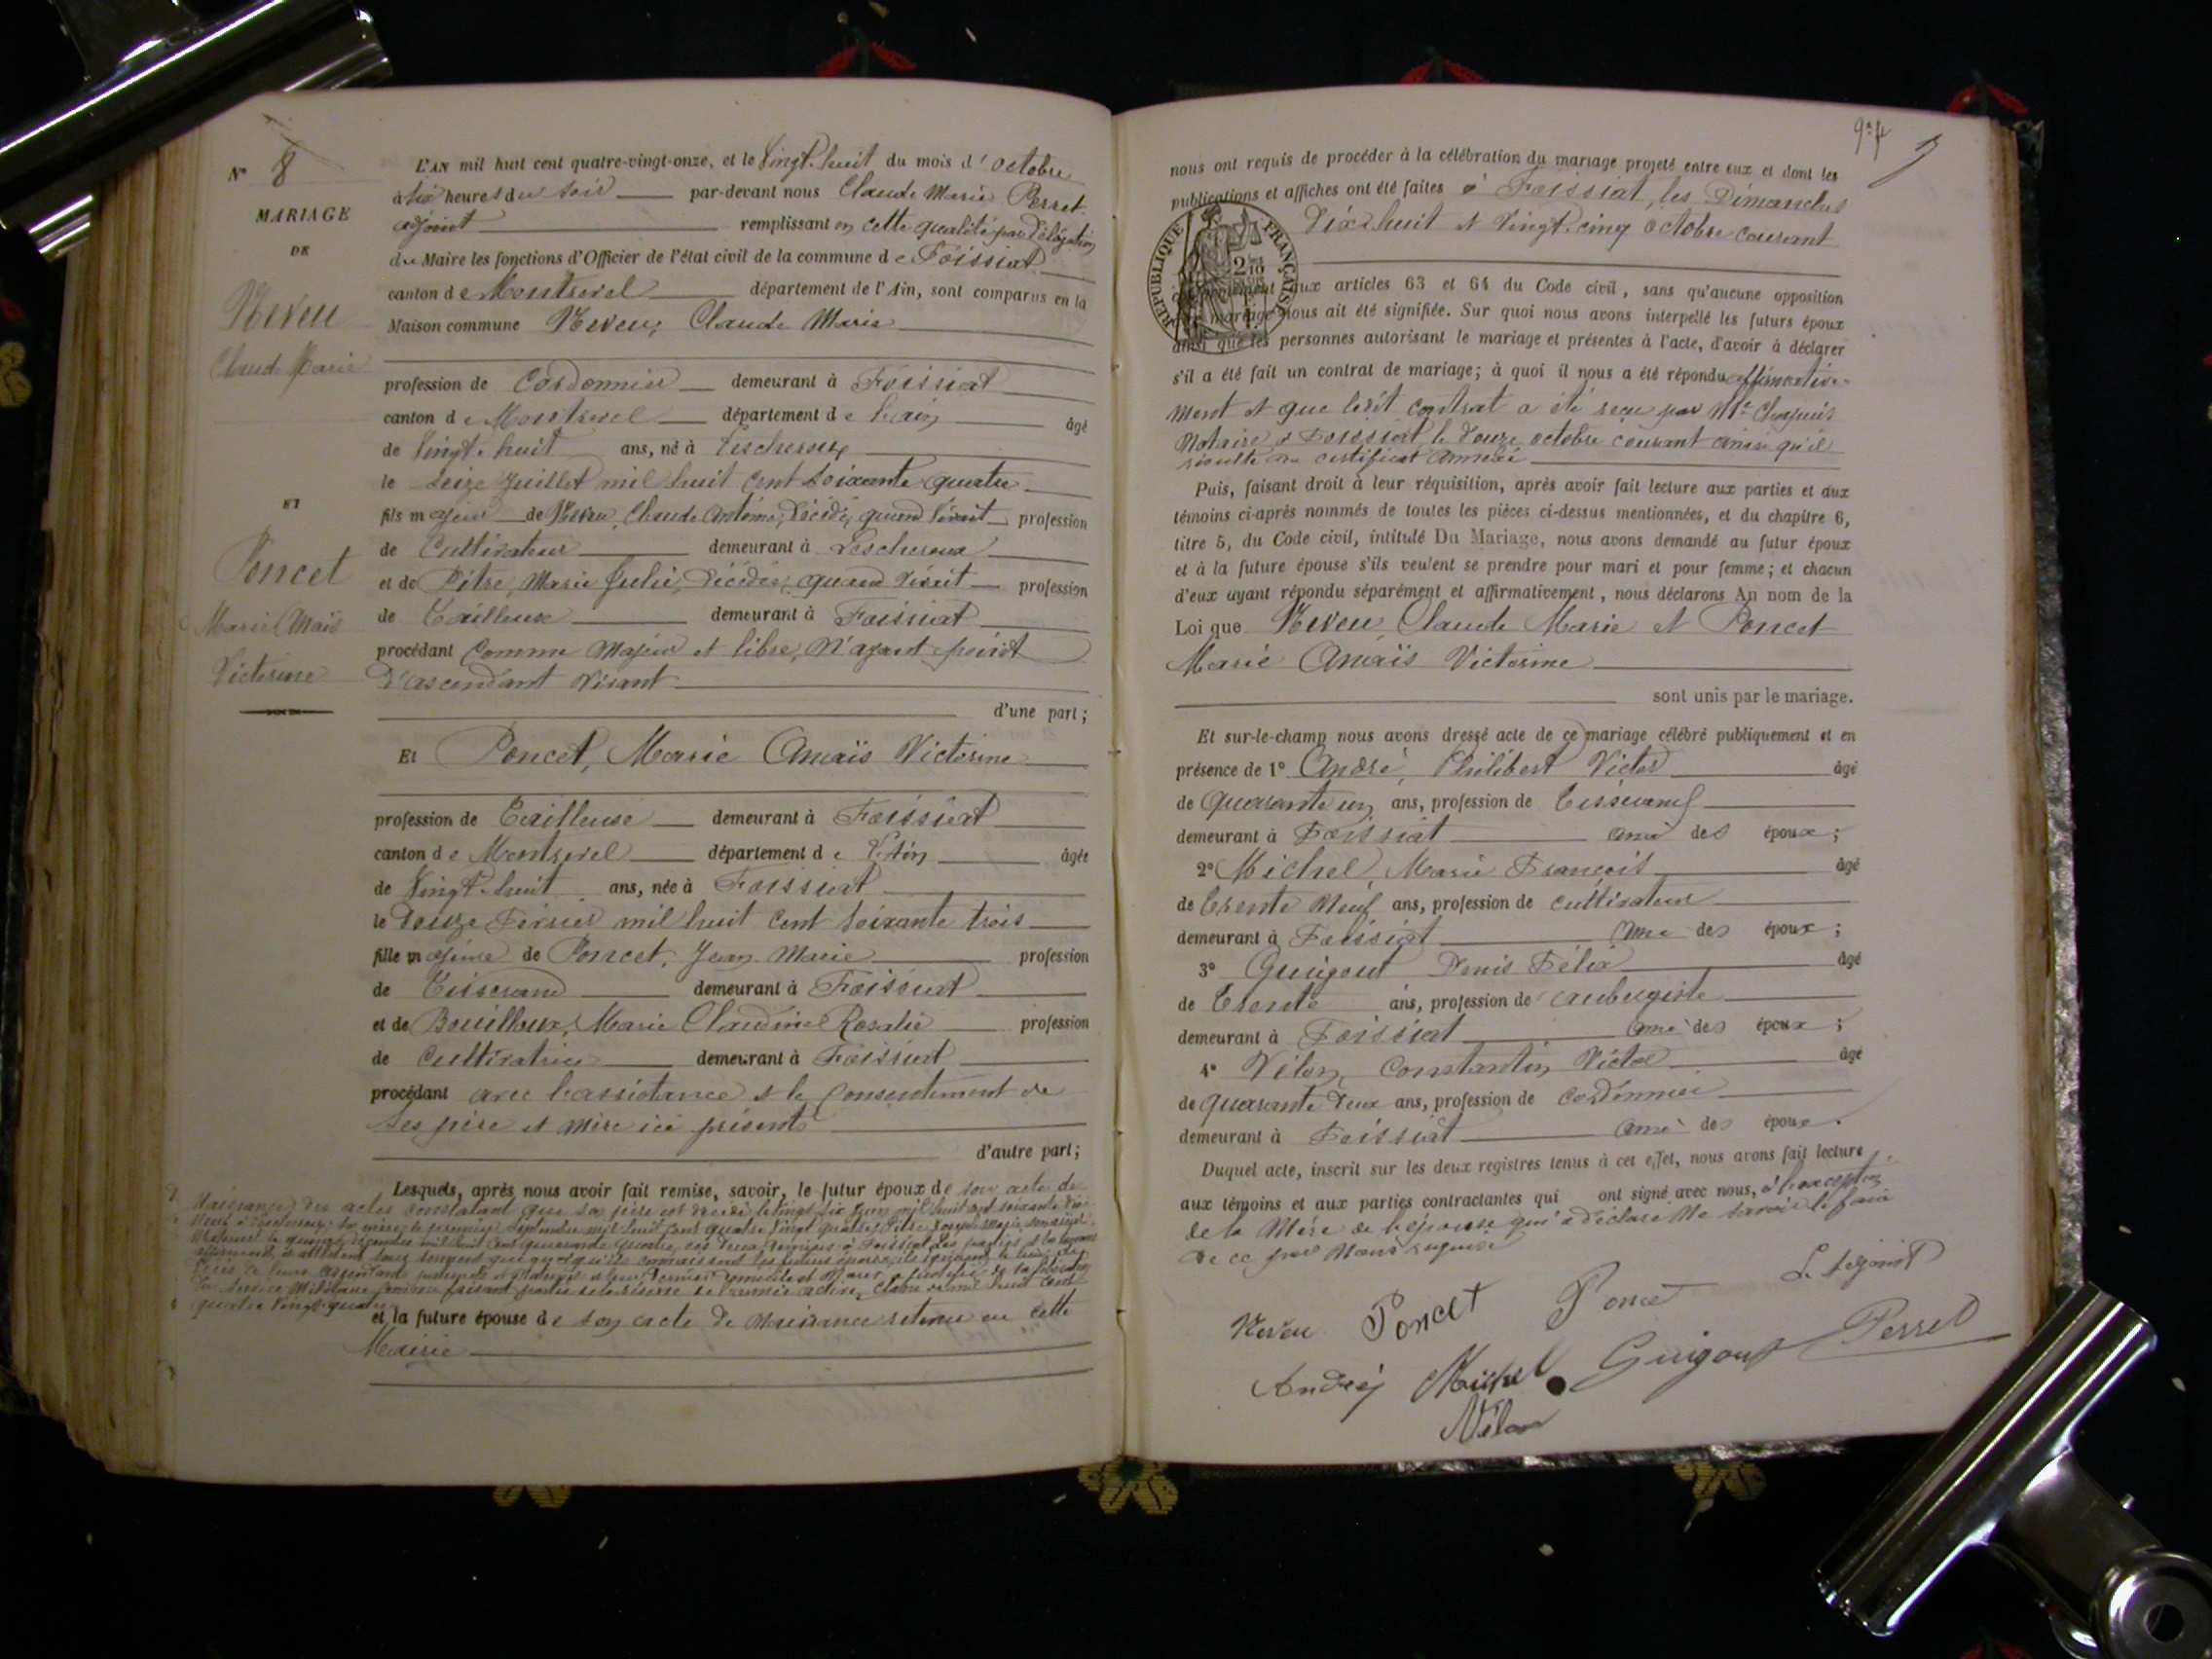 N° 8
MARIAGE
DE
Neveu
Claude Marie
ET
Poncet
Marie Anaïs
Victorine
L'AN mil huit cent quatre-vingt-onze, et le Vingt-huit du mois d'octobre
à six heures du soir par-devant nous Claude Marie Perret
adjoint remplissant en cette qualité par délégation
du Maire les fonctions d'Officier de l'état civil de la commune de Foissiat
canton de Montrevel département de l'Ain, sont comparus en la
Maison commune Neveu, Claude Marie
profession de Cordonnier demeurant à Foissiat
canton de Montrevel département de l'ain âgé
de Vingt-huit ans, né à Lescheroux
le seize Juillet mil huit cent soixante quatre
fils majeur de Neveu, Claude Antoine, décédé, quand vivait profession
de Cultivateur demeurant à Lescheroux
et de Pitre, Marie Julie, décédée, quand vivait profession
de Tailleuse demeurant à Foissiat
procédant Comme Majeur et libre, N'ayant point
d'ascendant vivant
d'une part;
Et Poncet, Marie Anaïs Victorine
profession de Tailleuse demeurant à Foissiat
canton de Montrevel département de l'Ain âgée
de Vingt-huit ans, née à Foissiat
le douze Février mil huit cent soixante trois
fille majeure de Poncet, Jean Marie profession
de Tisserand demeurant à Foissiat
et de Bouilloux, Marie Claudine Rosalie profession
de Cultivatrice demeurant à Foissiat
procédant avec l'assistance et le Consentement de
ses père et mère ici présents
d'autre part;
Lesquels, après nous avoir fait remise, savoir, le futur époux de son acte de
Naissance, des actes constatant que son père est décédé le vingt six Juin mil huit cent soixante dix
neuf à Lescheroux, sa mère le premier Septembre mil huit cent quatre vingt quatre,
quatre vingt-quatre
et la future épouse de son acte de Naissance retenu en cette
Mairie
nous ont requis de procéder à la célébration du mariage projeté entre eux et dont les
publications et affiches ont été faites à Foissiat, les Dimanches
dix-huit et Vingt-cinq octobre courant
REPUBLIQUE FRANÇAISE
aux articles 63 et 64 du Code civil, sans qu'aucune opposition
mariage nous ait été signifiée. Sur quoi nous avons interpellé les futurs époux
ainsi que les personnes autorisant le mariage et présentes à l'acte, d'avoir à déclarer
s'il a été fait un contrat de mariage; à quoi il nous a été répondu affirmative-
ment et que ledit contrat a été reçu par Me
Notaire à Foissiat le douze octobre courant ainsi qu'il
résulte du certificat annexé
Puis, faisant droit à leur réquisition, après avoir fait lecture aux parties et aux
témoins ci-après nommés de toutes les pièces ci-dessus mentionnées, et du chapitre 6,
titre 5, du Code civil, intitulé Du Mariage, nous avons demandé au futur époux
et à la future épouse s'ils veulent se prendre pour mari et pour femme; et chacun
d'eux ayant répondu séparément et affirmativement, nous déclarons Au nom de la
Loi que Neveu, Claude Marie et Poncet
Marie Anaïs Victorine
sont unis par le mariage.
Et sur-le-champ nous avons dressé acte de ce mariage célébré publiquement et en
présence de 1° André, Philibert Victor âgé
de quarante un ans, profession de Tisserand
demeurant à Foissiat ami des époux;
2° Michel, Marie François âgé
de trente Neuf ans, profession de cultivateur
demeurant à Foissiat ami des époux;
3° Guigout Denis Félix âgé
de trente ans, profession de aubergiste
demeurant à Foissiat ami des époux;
4° Vilon, Constantin Victor âgé
de quarante deux ans, profession de Cordonnier
demeurant à Foissiat ami des époux.
Duquel acte, inscrit sur les deux registres tenus à cet effet, nous avons fait lecture
aux témoins et aux parties contractantes qui ont signé avec nous, à l'exception
de la Mère de l'épouse qui a déclaré Ne savoir le faire
de ce par Nous requise
Neveu Poncet Poncet L'adjoint
André Michel Guigout Perret
Vilon